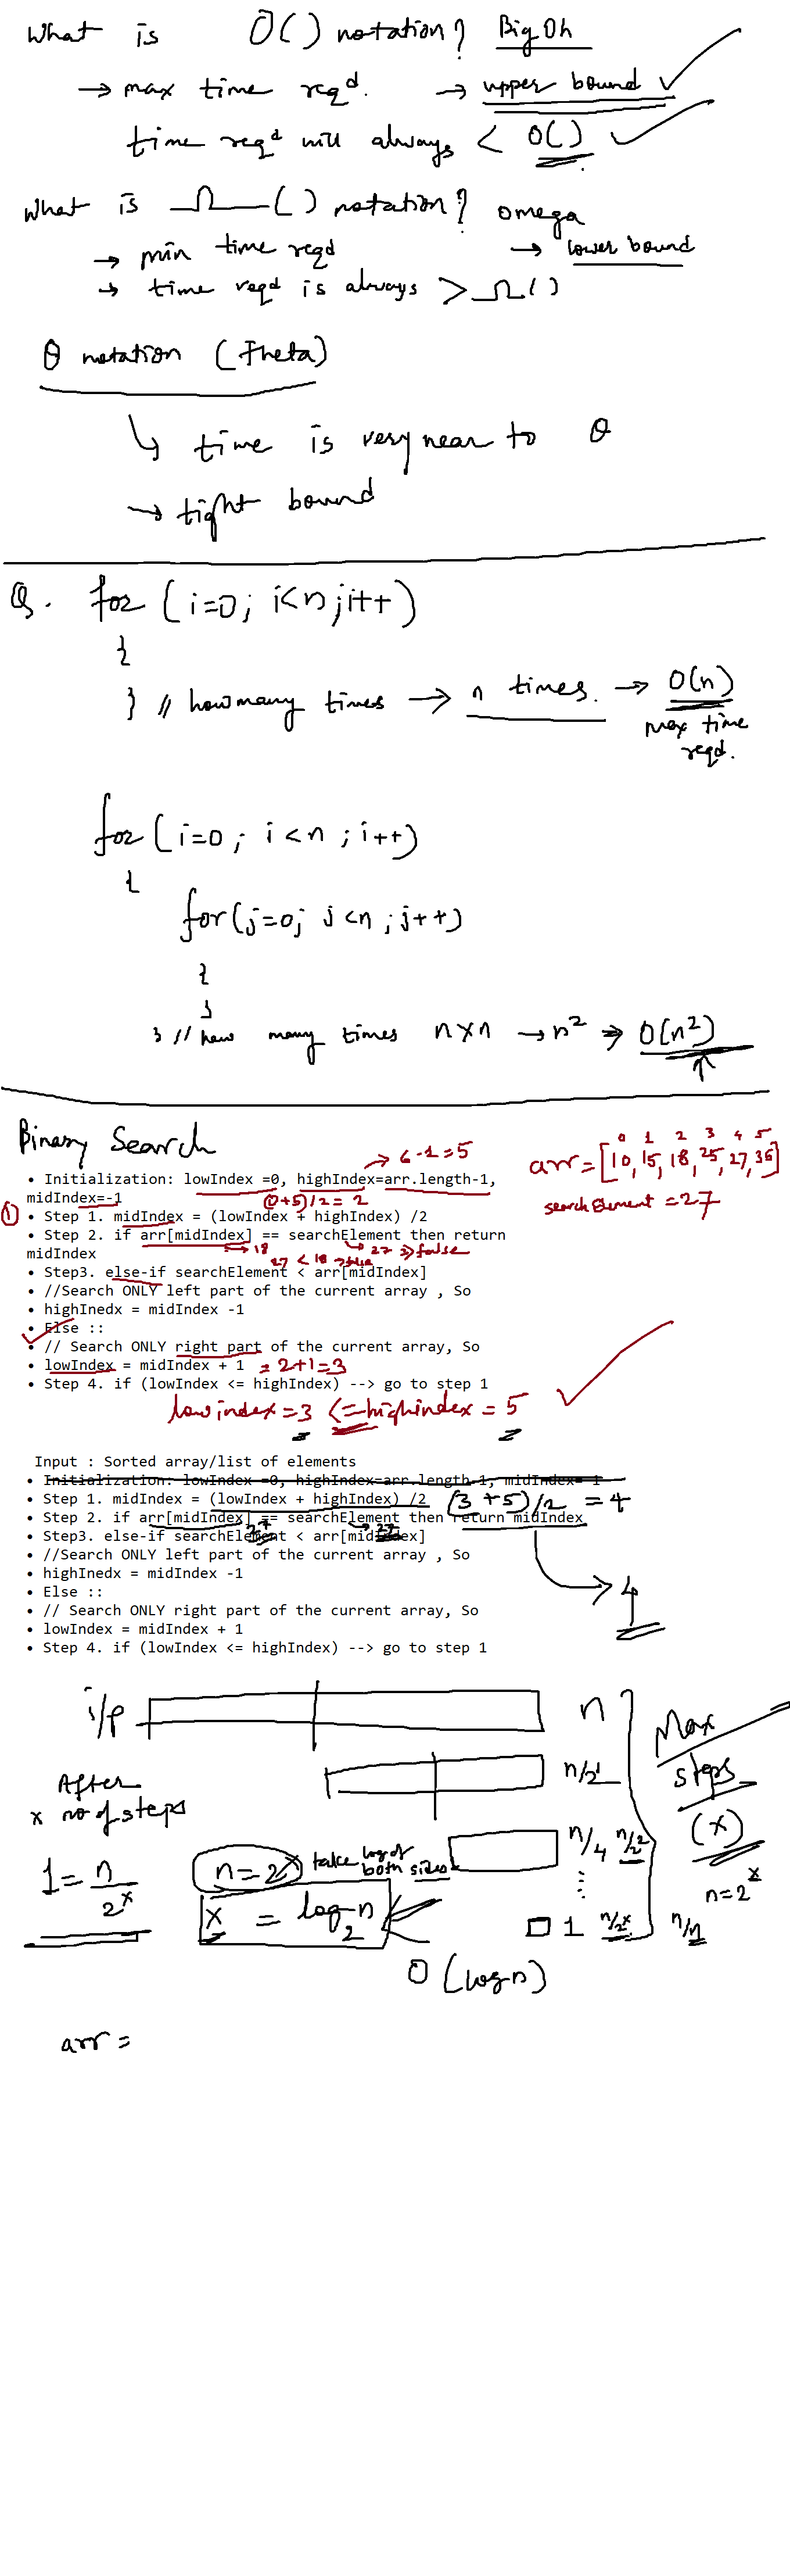 What is O() notation? Big Oh
→ max time reqd. → upper bound ✓
time reqd will always < O() ✓
What is Ω() notation? omega
→ min time reqd → lower bound
→ time reqd is always > Ω()
θ notation (Theta)
↳ time is very near to θ
→ tight bound
Q. for (i=0; i<n; i++)
{
} // how many times → n times. → O(n)
max time
reqd.
for (i=0; i<n; i++)
{
for(j=0; j<n; j++)
{
}
} // how many times n×n → n² ⇒ O(n²)
↑
Binary Search
→ 6-1=5
0 1 2 3 4 5
arr = [10, 15, 18, 25, 27, 36]
searchElement = 27
• Initialization: lowIndex =0, highIndex=arr.length-1,
midIndex=-1
(0+5)/2 = 2
① • Step 1. midIndex = (lowIndex + highIndex) /2
• Step 2. if arr[midIndex] == searchElement then return
midIndex
→ 18 → 27 ⇒ false
27 < 18 → false
• Step3. else-if searchElement < arr[midIndex]
• //Search ONLY left part of the current array , So
• highInedx = midIndex -1
• Else ::
• // Search ONLY right part of the current array, So
• lowIndex = midIndex + 1 = 2+1=3
• Step 4. if (lowIndex <= highIndex) --> go to step 1
lowindex = 3 <= highindex = 5 ✓
Input : Sorted array/list of elements
• Initialization: lowIndex =0, highIndex=arr.length-1, midIndex=-1
• Step 1. midIndex = (lowIndex + highIndex) /2 (3+5)/2 = 4
• Step 2. if arr[midIndex] == searchElement then return midIndex
27 → 27
• Step3. else-if searchElement < arr[midIndex]
• //Search ONLY left part of the current array , So
• highInedx = midIndex -1
→ 4
• Else ::
• // Search ONLY right part of the current array, So
• lowIndex = midIndex + 1
• Step 4. if (lowIndex <= highIndex) --> go to step 1
i/p n
Max
steps
(x)
n=2ˣ
n/2¹
n/4 n/2²
⋮
1 n/2ˣ n/n
After
x no of steps
1 = n/2ˣ
n = 2ˣ take log of
both sides
x = log₂n
O (log n)
arr =